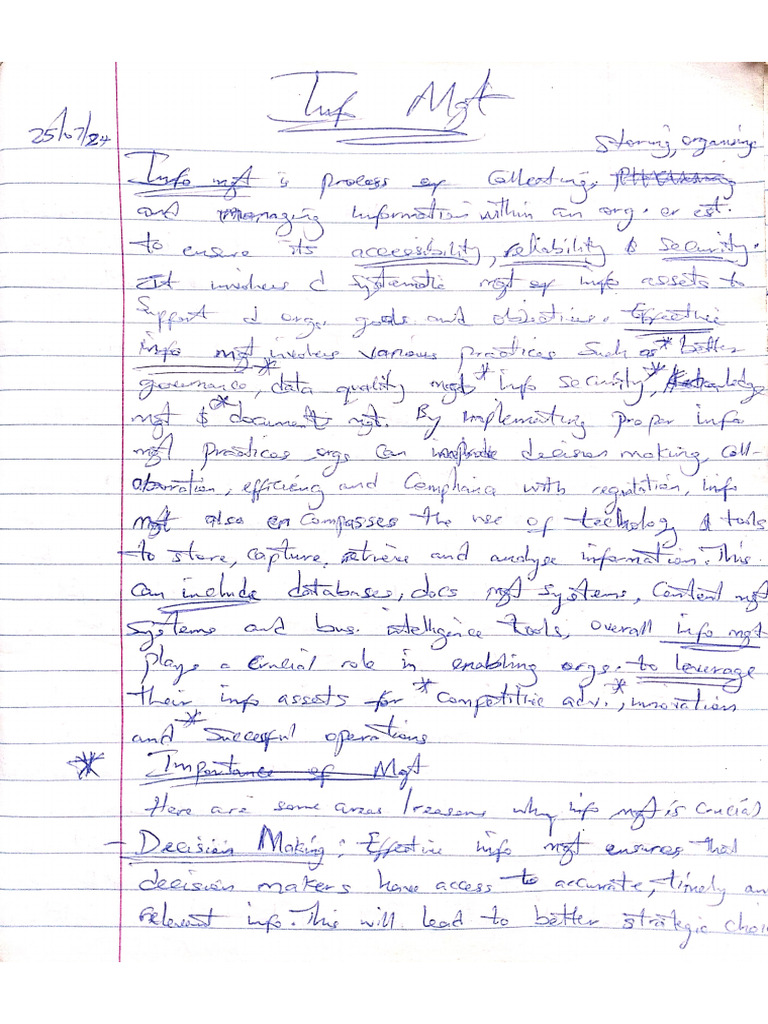 Inf Mgt
25/07/24
storing, organising
Info mgt is process of Collecting,
and managing Information within an org. or est.
to ensure its accessibility, reliability & security.
It involves d systematic mgt of info assets to
Support d orgs goals and objectives. Effective
info mgt involves various practices such as * better
governance, * data quality mgt * info security, * knowledge
mgt $ * document mgt. By implementing proper info
mgt practices orgs can decision making, coll-
aboration, efficiency and Compliance with regulation, info
mgt also encompasses the use of technology & tools
to store, capture, retrieve and analyse information. This
can include databases, docs mgt systems, Content mgt
systems and bus. intelligence tools, overall info mgt
plays a crucial role in enabling orgs. to leverage
their info assets for * competitive adv. *, innovation
and * successful operations
* Importance of Mgt
Here are some areas/reasons why info mgt is crucial
- Decision Making: Effective info mgt ensures that
decision makers have access to accurate, timely an
relevant info. This will lead to better strategic choi